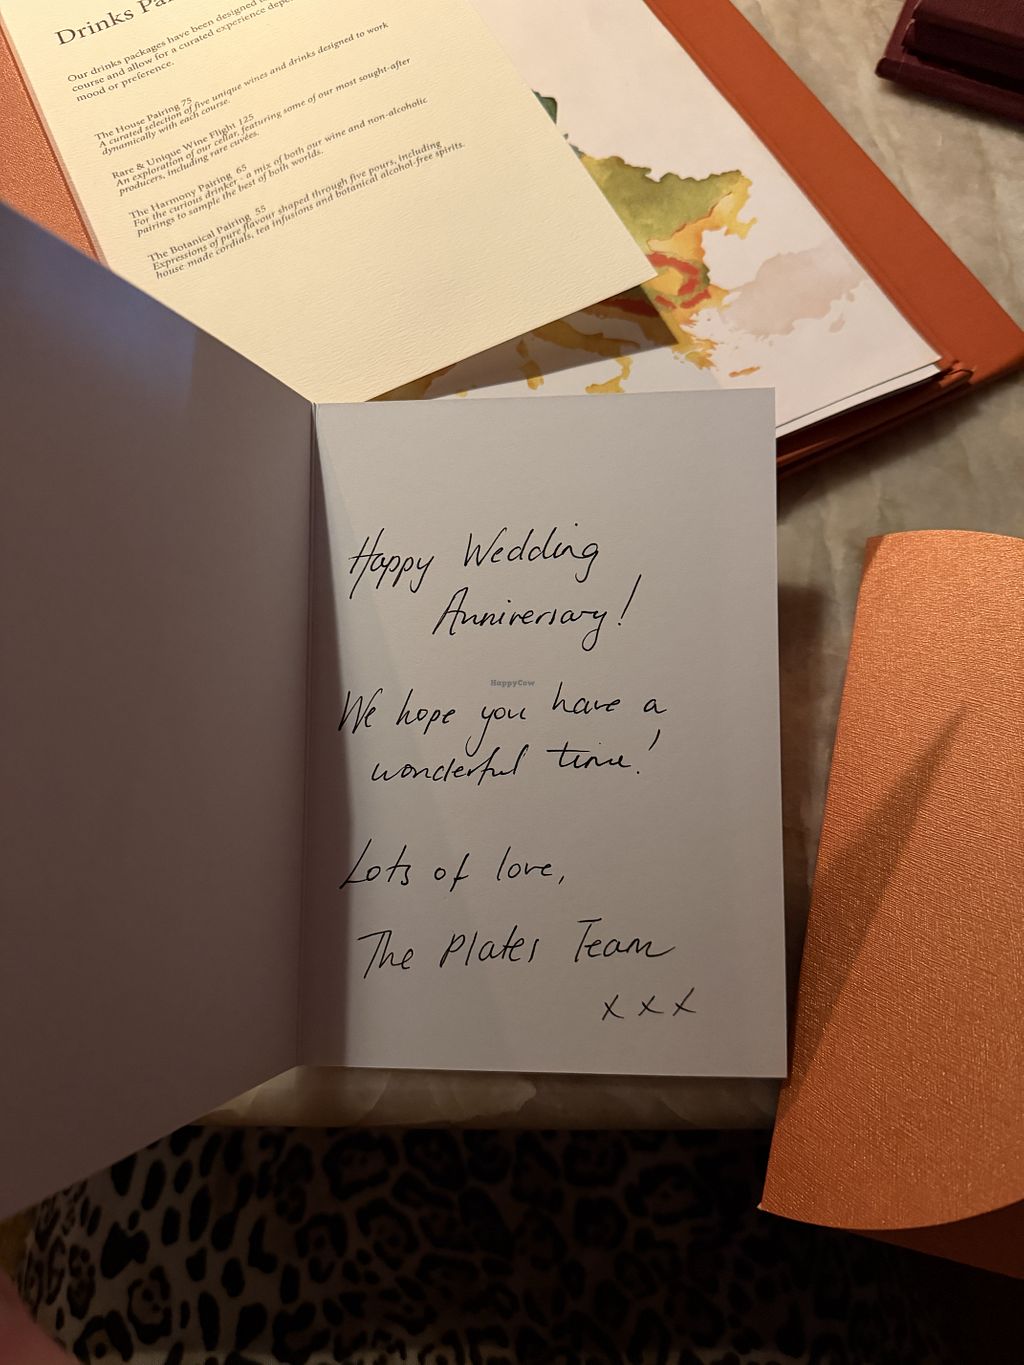 Drinks Pai
Our drinks packages have been designed t
course and allow for a curated experience depe
mood or preference.
The House Pairing 75
A curated selection of five unique wines and drinks designed to work
dynamically with each course.
Rare & Unique Wine Flight 125
An exploration of our cellar, featuring some of our most sought-after
producers, including rare cuvées.
The Harmony Pairing 65
For the curious drinker - a mix of both our wine and non-alcoholic
pairings to sample the best of both worlds.
The Botanical Pairing 55
Expressions of pure flavour shaped through five pours, including
house-made cordials, tea infusions and botanical alcohol-free spirits.
Happy Wedding
Anniversary!
HappyCow
We hope you have a
wonderful time!
Lots of love,
The Plates Team
x x x